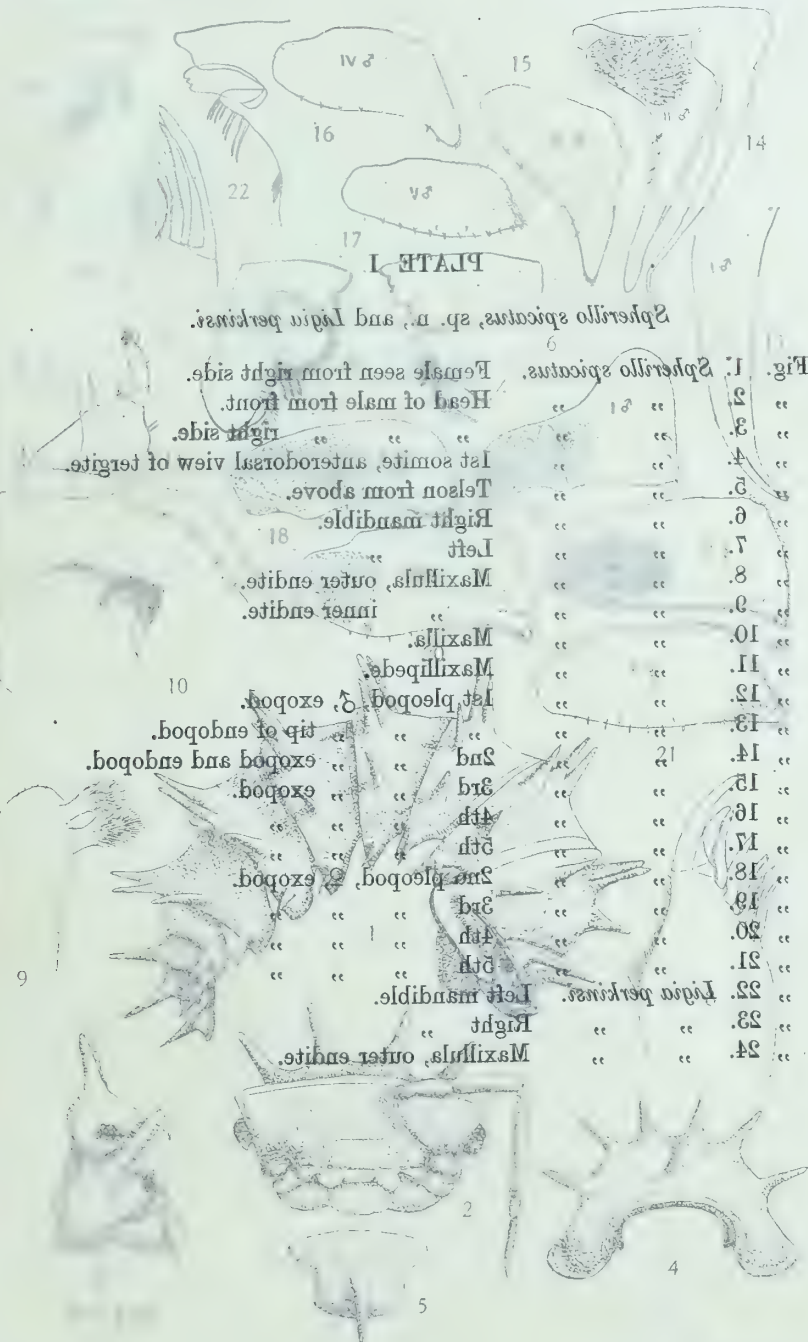 PLATE I
Spherillo spicatus, sp. n., and Ligia perkinsi.
Fig. 1. Spherillo spicatus. Female seen from right side.
„ 2. „ „ Head of male from front.
„ 3. „ „ „ „ „ right side.
„ 4. „ „ 1st somite, anterodorsal view of tergite.
„ 5. „ „ Telson from above.
„ 6. „ „ Right mandible.
„ 7. „ „ Left „
„ 8. „ „ Maxillula, outer endite.
„ 9. „ „ „ inner endite.
„ 10. „ „ Maxilla.
„ 11. „ „ Maxillipede.
„ 12. „ „ 1st pleopod, ♂, exopod.
„ 13. „ „ „ „ „ tip of endopod.
„ 14. „ „ 2nd „ „ exopod and endopod.
„ 15. „ „ 3rd „ „ exopod.
„ 16. „ „ 4th „ „ „
„ 17. „ „ 5th „ „ „
„ 18. „ „ 2nd pleopod, ♀, exopod.
„ 19. „ „ 3rd „ „ „
„ 20. „ „ 4th „ „ „
„ 21. „ „ 5th „ „ „
„ 22. Ligia perkinsi. Left mandible.
„ 23. „ „ Right „
„ 24. „ „ Maxillula, outer endite.
IV ♂
15
II ♂
14
16
22
V ♂
17
I ♂
6
18
10
21
1
9
2
4
5